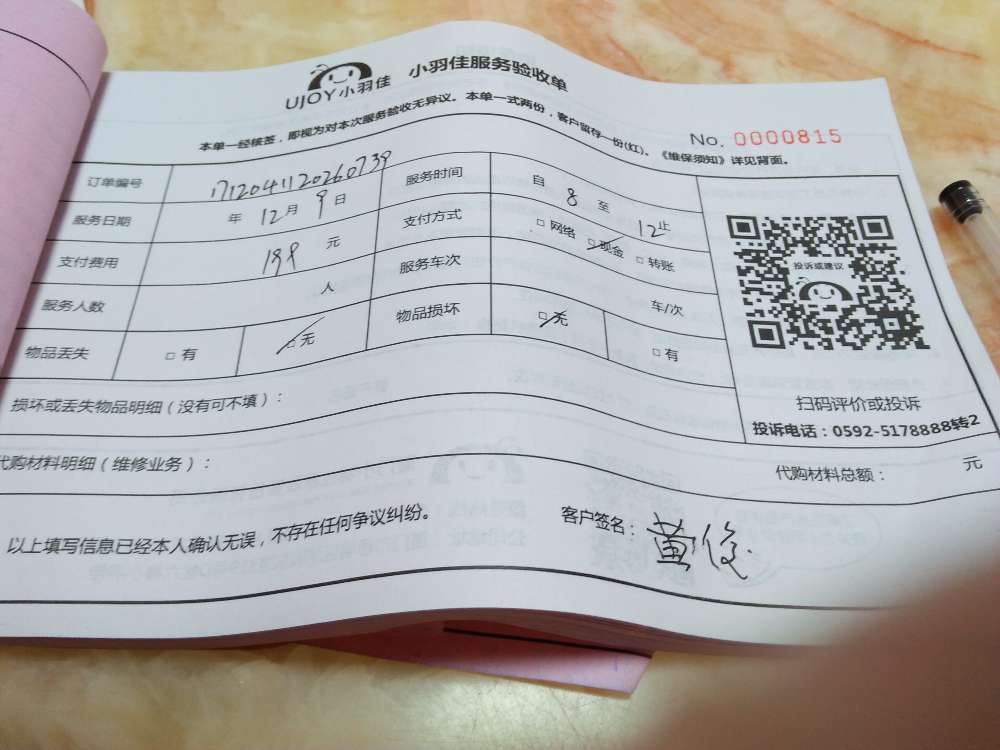 UJOY小羽佳 小羽佳服务验收单
本单一经核签，即视为对本次服务验收无异议。本单一式两份，客户留存一份(红)。《维保须知》详见背面。
No. 0000815
订单编号 1712041120260739 服务时间 自 8 至 12 止
服务日期 年 12 月 9 日 支付方式 □ 网络 □ 现金 □ 转账
支付费用 199 元 服务车次 车/次
服务人数 人 物品损坏 □ 无 □ 有
物品丢失 □ 有 □ 无
投诉或建议
扫码评价或投诉
投诉电话：0592-5178888转2
损坏或丢失物品明细（没有可不填）：
代购材料明细（维修业务）： 代购材料总额： 元
以上填写信息已经本人确认无误，不存在任何争议纠纷。 客户签名： 黄俊